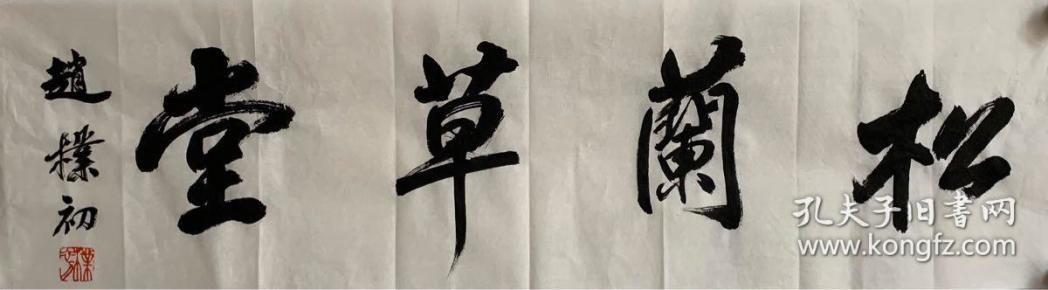 松蘭草堂
趙樸初
孔夫子旧書网
www.kongfz.com